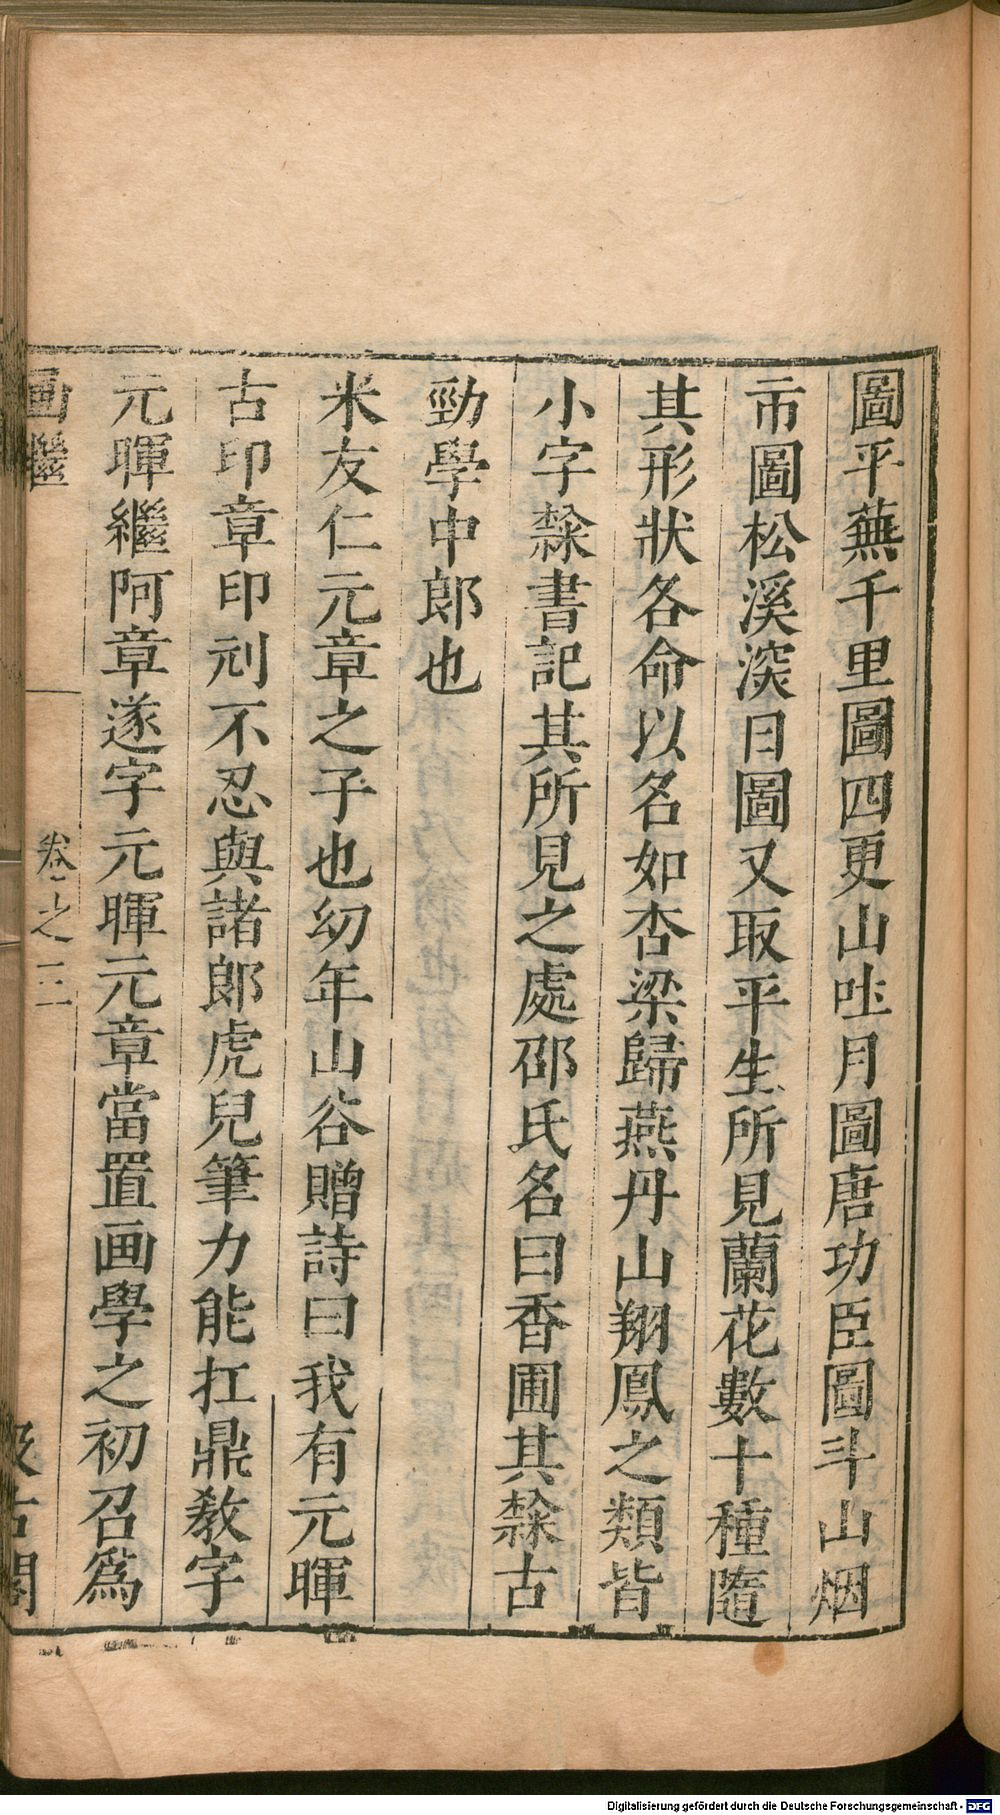 圖平蕪千里圖四更山吐月圖唐功臣圖斗山烟
市圖松溪深日圖又取平生所見蘭花數十種隨
其形狀各命以名如杏梁歸燕丹山翔鳳之類皆
小字隸書記其所見之處邵氏名曰香圃其隸古
勁學中郎也
米友仁元章之子也幼年山谷贈詩曰我有元暉
古印章印刓不忍與諸郎虎兒筆力能扛鼎教字
元暉繼阿章遂字元暉元章當置画學之初召爲
画繼 卷之三 汲古閣
Digitalisierung gefördert durch die Deutsche Forschungsgemeinschaft - DFG